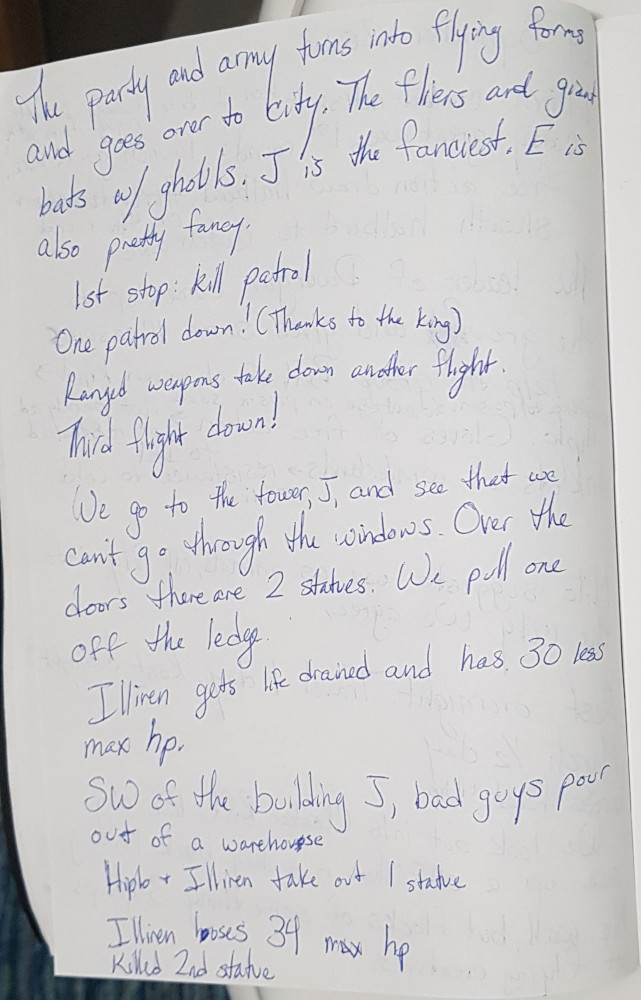 The party and army turns into flying forms
and goes over to city. The fliers and giant
bats w/ ghouls. J is the fanciest. E is
also pretty fancy.
1st stop: kill patrol
One patrol down! (Thanks to the king)
Ranged weapons take down another flight.
Third flight down!
We go to the tower, J, and see that we
can't go through the windows. Over the
doors there are 2 statues. We pull one
off the ledge.
Illiren gets life drained and has 30 less
max hp.
SW of the building J, bad guys pour
out of a warehouse
Hiplo + Illiren take out 1 statue
Illiren looses 34 max hp
Killed 2nd statue